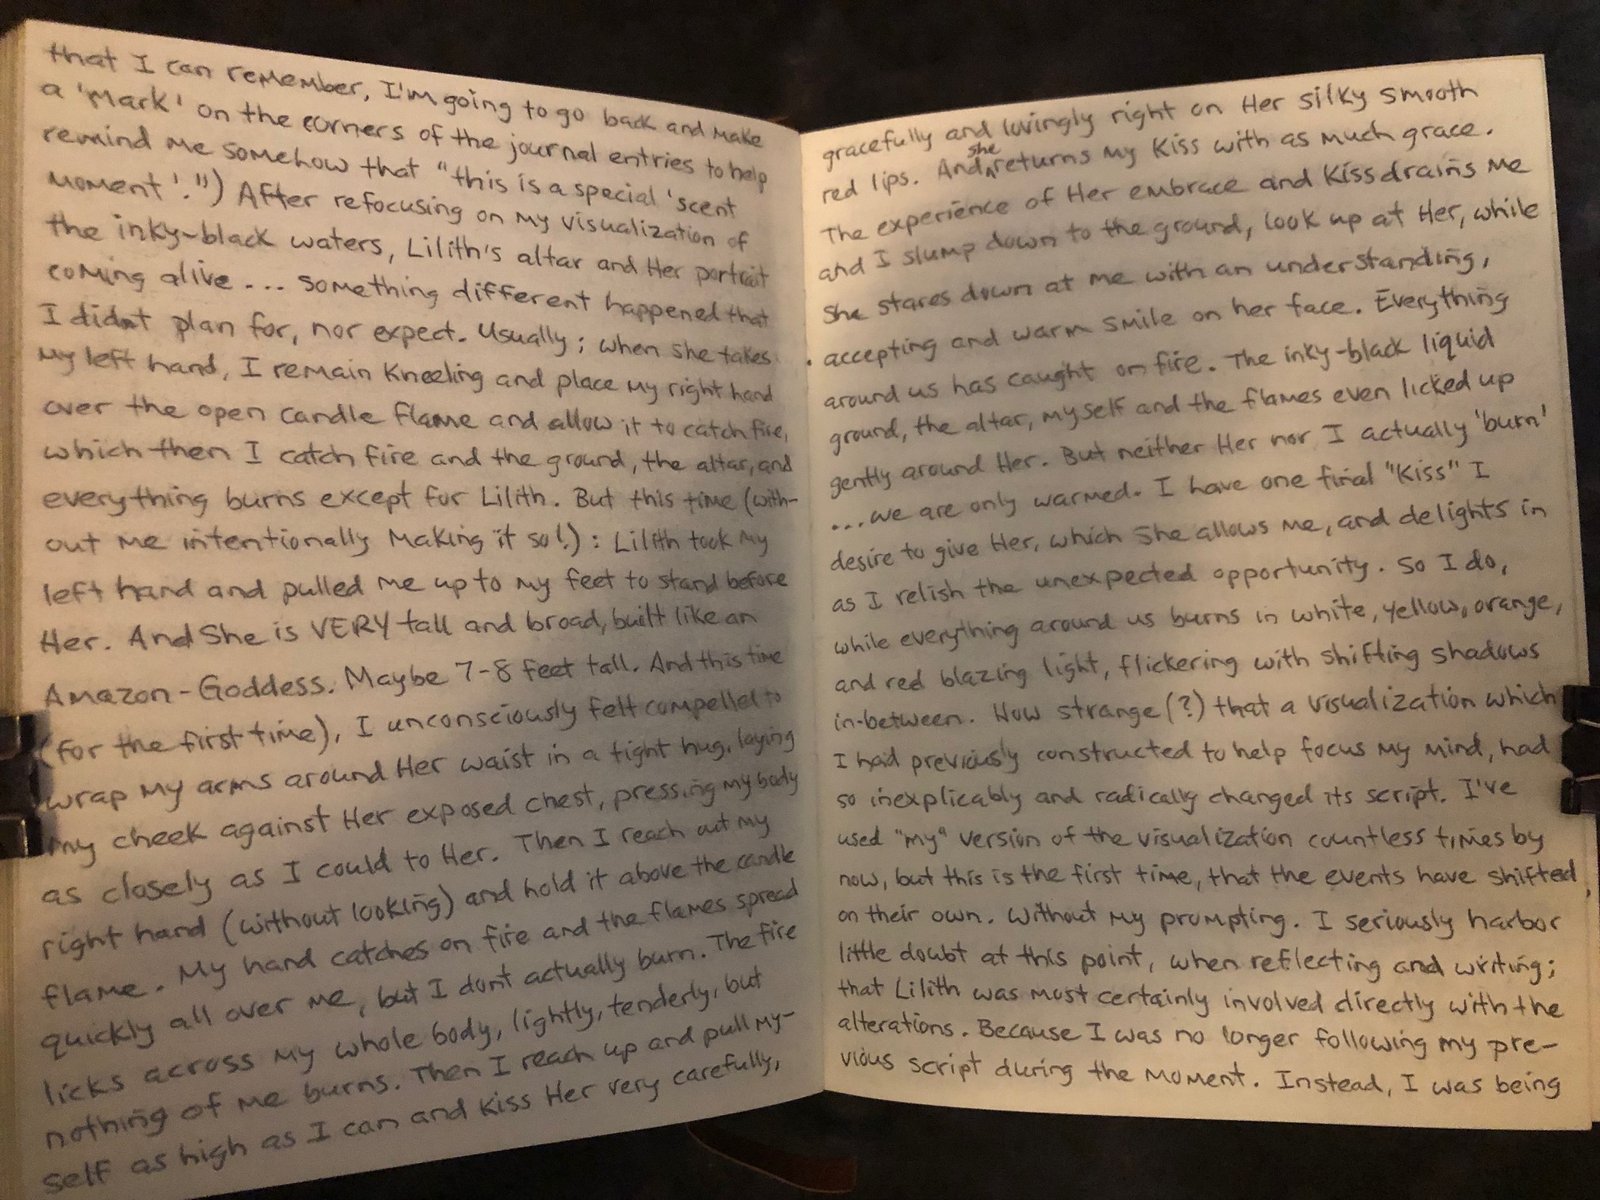 that I can remember, I'm going to go back and make
a 'mark' on the corners of the journal entries to help
remind me somehow that "this is a special 'scent
moment'.") After refocusing on my visualization of
the inky-black waters, Lilith's altar and Her portrait
coming alive... something different happened that
I didn't plan for, nor expect. Usually; when she takes
my left hand, I remain kneeling and place my right hand
over the open candle flame and allow it to catch fire,
which then I catch fire and the ground, the altar, and
everything burns except for Lilith. But this time (with-
out me intentionally making it so!): Lilith took my
left hand and pulled me up to my feet to stand before
Her. And She is VERY tall and broad, built like an
Amazon-Goddess. Maybe 7-8 feet tall. And this time
(for the first time), I unconsciously felt compelled to
wrap my arms around Her waist in a tight hug, laying
my cheek against Her exposed chest, pressing my body
as closely as I could to Her. Then I reach out my
right hand (without looking) and hold it above the candle
flame. My hand catches on fire and the flames spread
quickly all over me, but I dont actually burn. The fire
licks across my whole body, lightly, tenderly, but
nothing of me burns. Then I reach up and pull my-
self as high as I can and kiss Her very carefully,
gracefully and lovingly right on Her silky smooth
red lips. And she returns my kiss with as much grace.
The experience of Her embrace and kiss drains me
and I slump down to the ground, look up at Her, while
She stares down at me with an understanding,
accepting and warm smile on her face. Everything
around us has caught on fire. The inky-black liquid
ground, the altar, myself and the flames even licked up
gently around Her. But neither Her nor I actually 'burn'
...we are only warmed. I have one final "kiss" I
desire to give Her, which She allows me, and delights in
as I relish the unexpected opportunity. So I do,
while everything around us burns in white, yellow, orange,
and red blazing light, flickering with shifting shadows
in-between. How strange (?) that a visualization which
I had previously constructed to help focus my mind, had
so inexplicably and radically changed its script. I've
used "my" version of the visualization countless times by
now, but this is the first time, that the events have shifted
on their own. Without my prompting. I seriously harbor
little doubt at this point, when reflecting and writing;
that Lilith was most certainly involved directly with the
alterations. Because I was no longer following my pre-
vious script during the moment. Instead, I was being